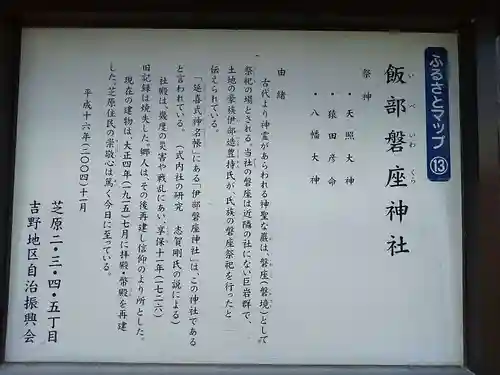 ふるさとマップ⑬
飯部磐座神社
いべ いわ くら
祭神
・天照大神
・猿田彦命
・八幡大神
由緒
古代より神霊があらわれる神聖な巌は、磐座(磐境)として
祭祀の場とされる。当社の磐座は近隣の社にない巨岩群で、
土地の豪族伊部造豊持氏が、氏族の磐座祭祀を行ったと
伝えられている。
「延喜式神名帳」にある「伊部磐座神社」は、この神社である
と言われている。(式内社の研究 志賀剛氏の説による)
社殿は、幾度の災害や戦乱にあい、享保十一年(一七二六)
旧記録は焼失した。郷人は、その後再建し信仰のより所とした。
現在の建物は、大正四年(一九一五)七月に拝殿・幣殿を再建
した。芝原住民の崇敬心は篤く今日に至っている。
平成十六年(二〇〇四)十一月
芝原二・三・四・五丁目
吉野地区自治振興会